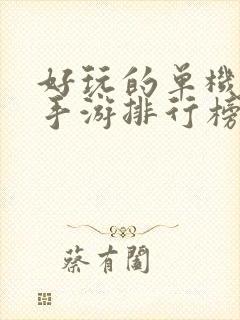 好玩的单機
手游排行榜
蔡有闔